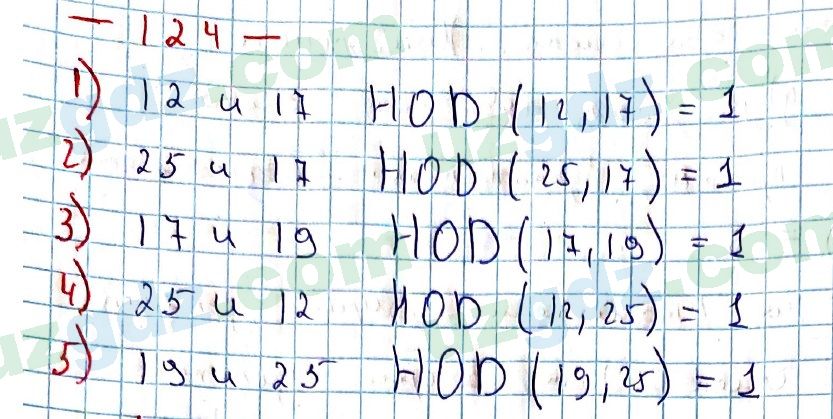 — 124 —
1) 12 и 17 НОD (12, 17) = 1
2) 25 и 17 НОD (25, 17) = 1
3) 17 и 19 НОD (17, 19) = 1
4) 25 и 12 НОD (12, 25) = 1
5) 19 и 25 НОD (19, 25) = 1